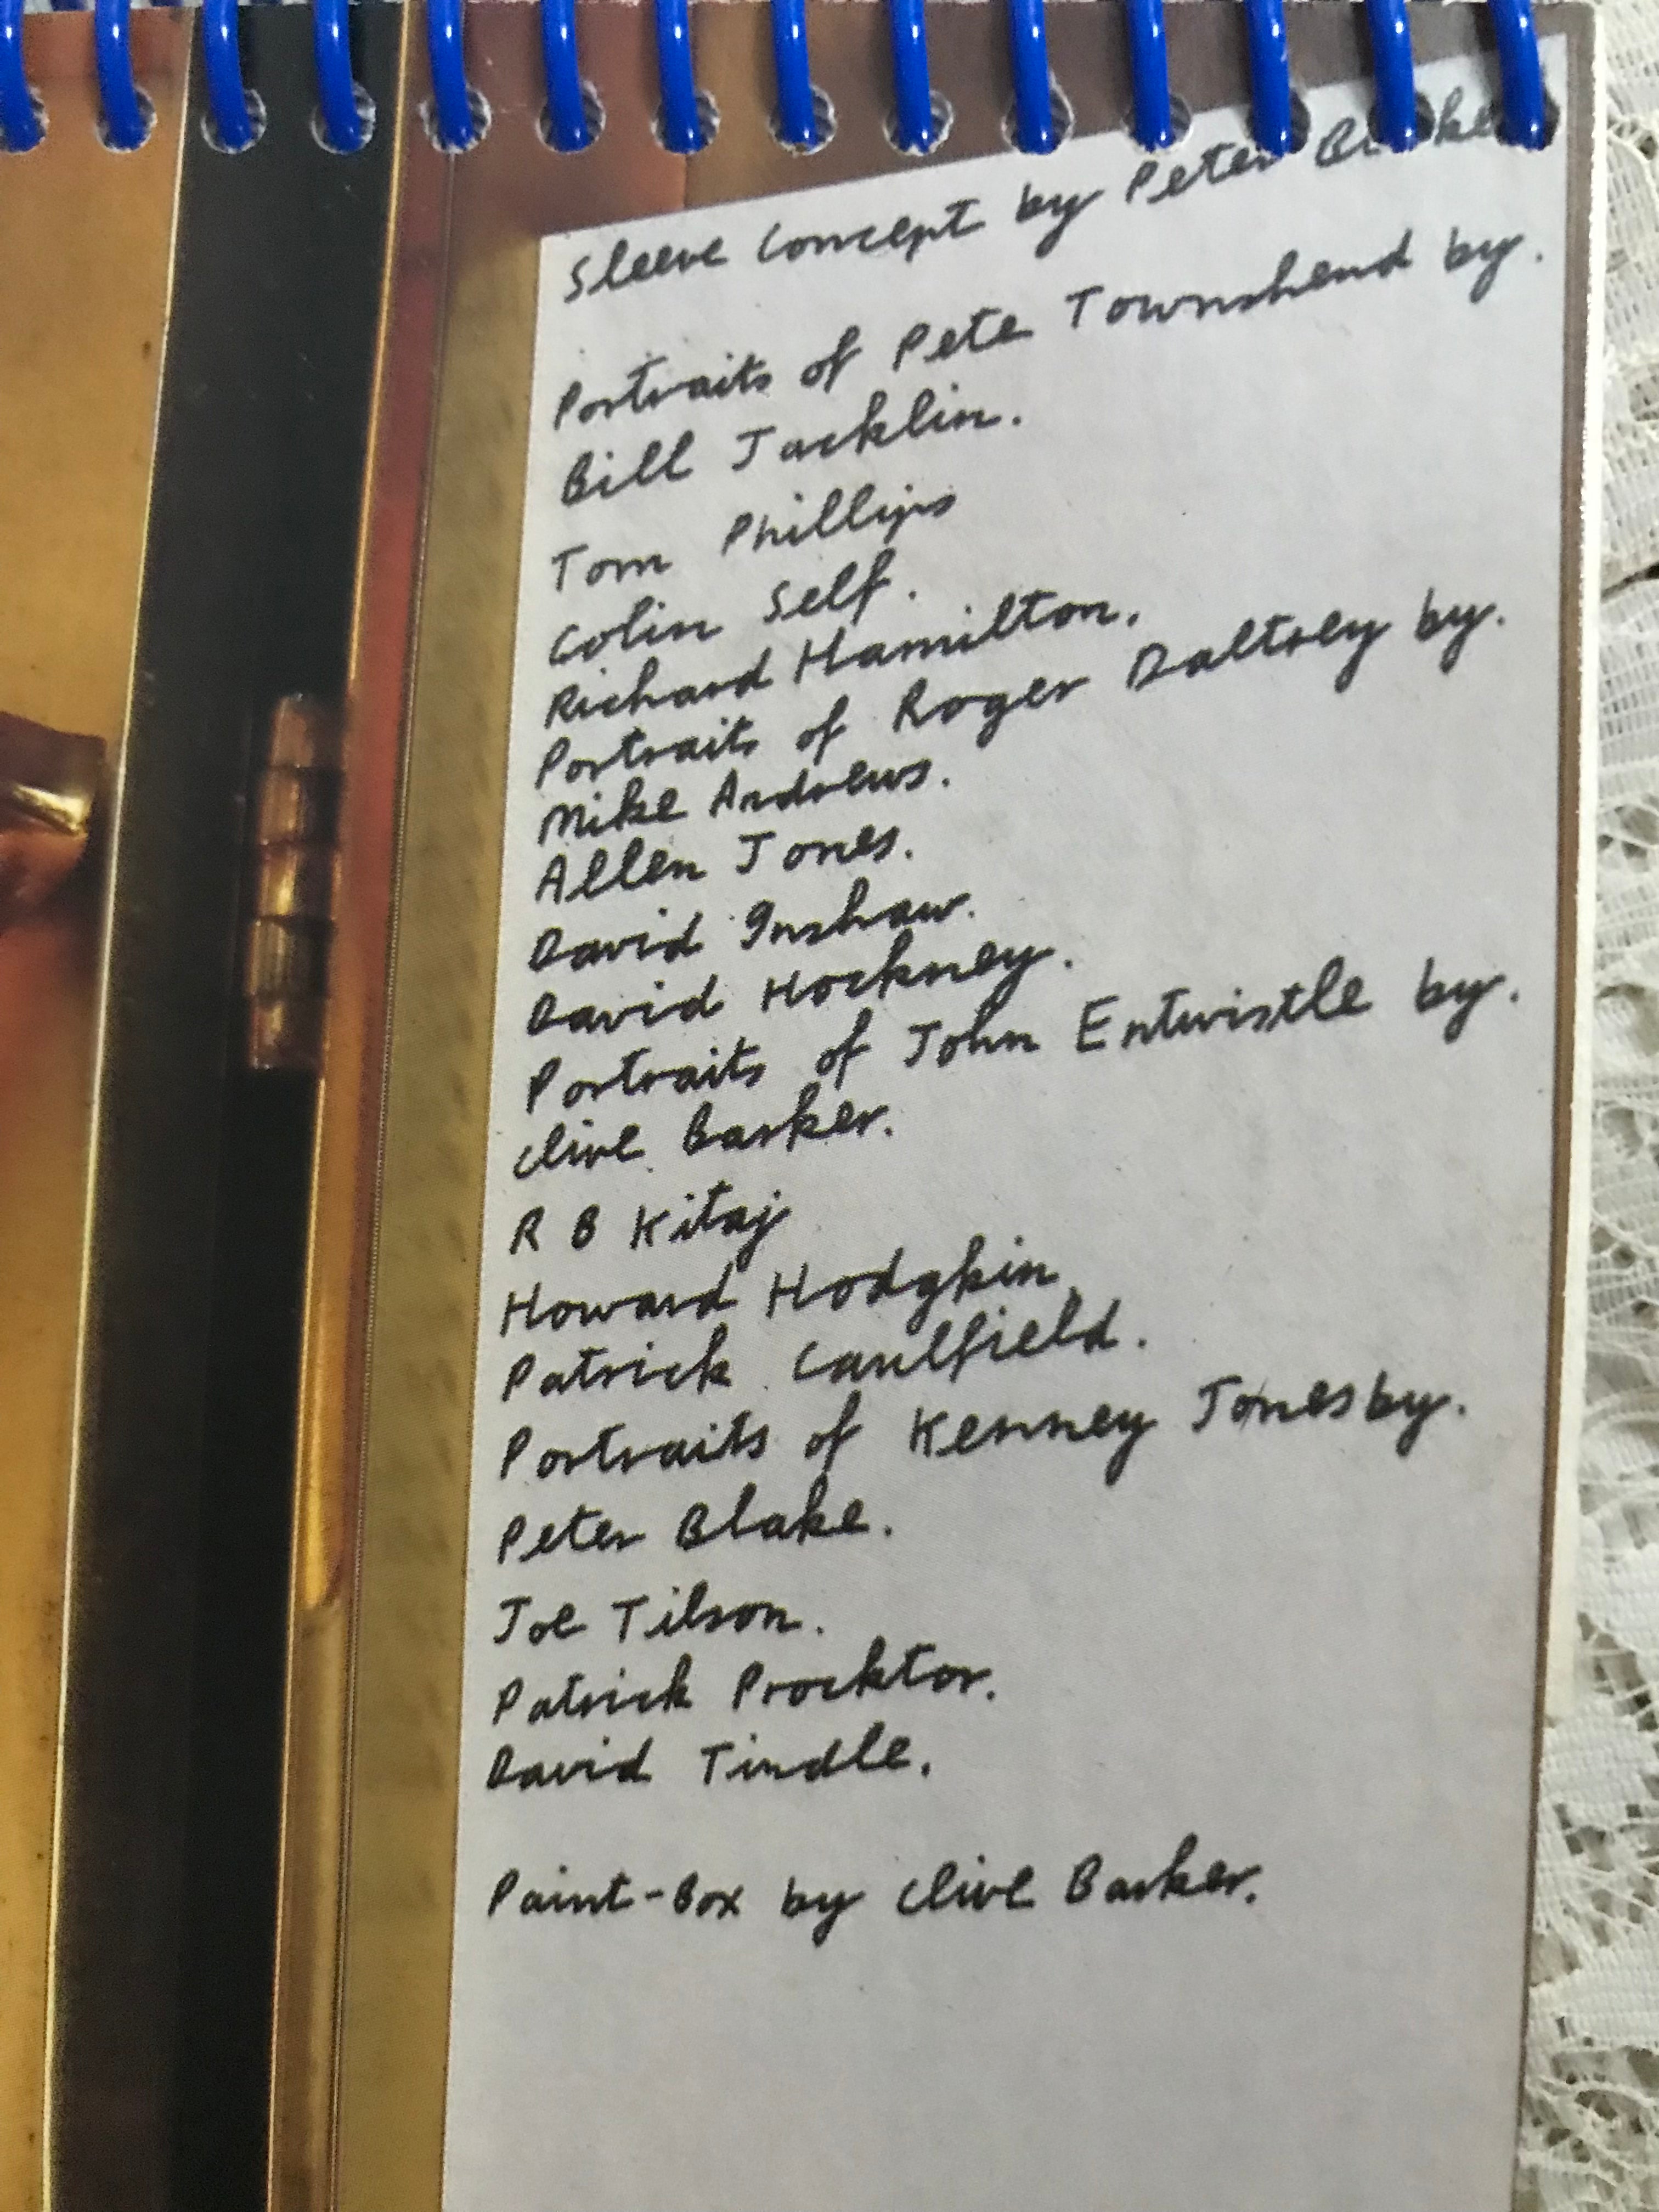 Sleeve Concept by Peter Blake
Portraits of Pete Townshend by.
Bill Jacklin.
Tom Phillips
Colin Self.
Richard Hamilton.
Portraits of Roger Daltrey by.
Mike Andrews.
Allen Jones.
David Inshaw.
David Hockney.
Portraits of John Entwistle by.
Clive Barker.
R B Kitaj
Howard Hodgkin.
Patrick Caulfield.
Portraits of Kenney Jones by.
Peter Blake.
Joe Tilson.
Patrick Procktor.
David Tindle.
Paint-Box by Clive Barker.